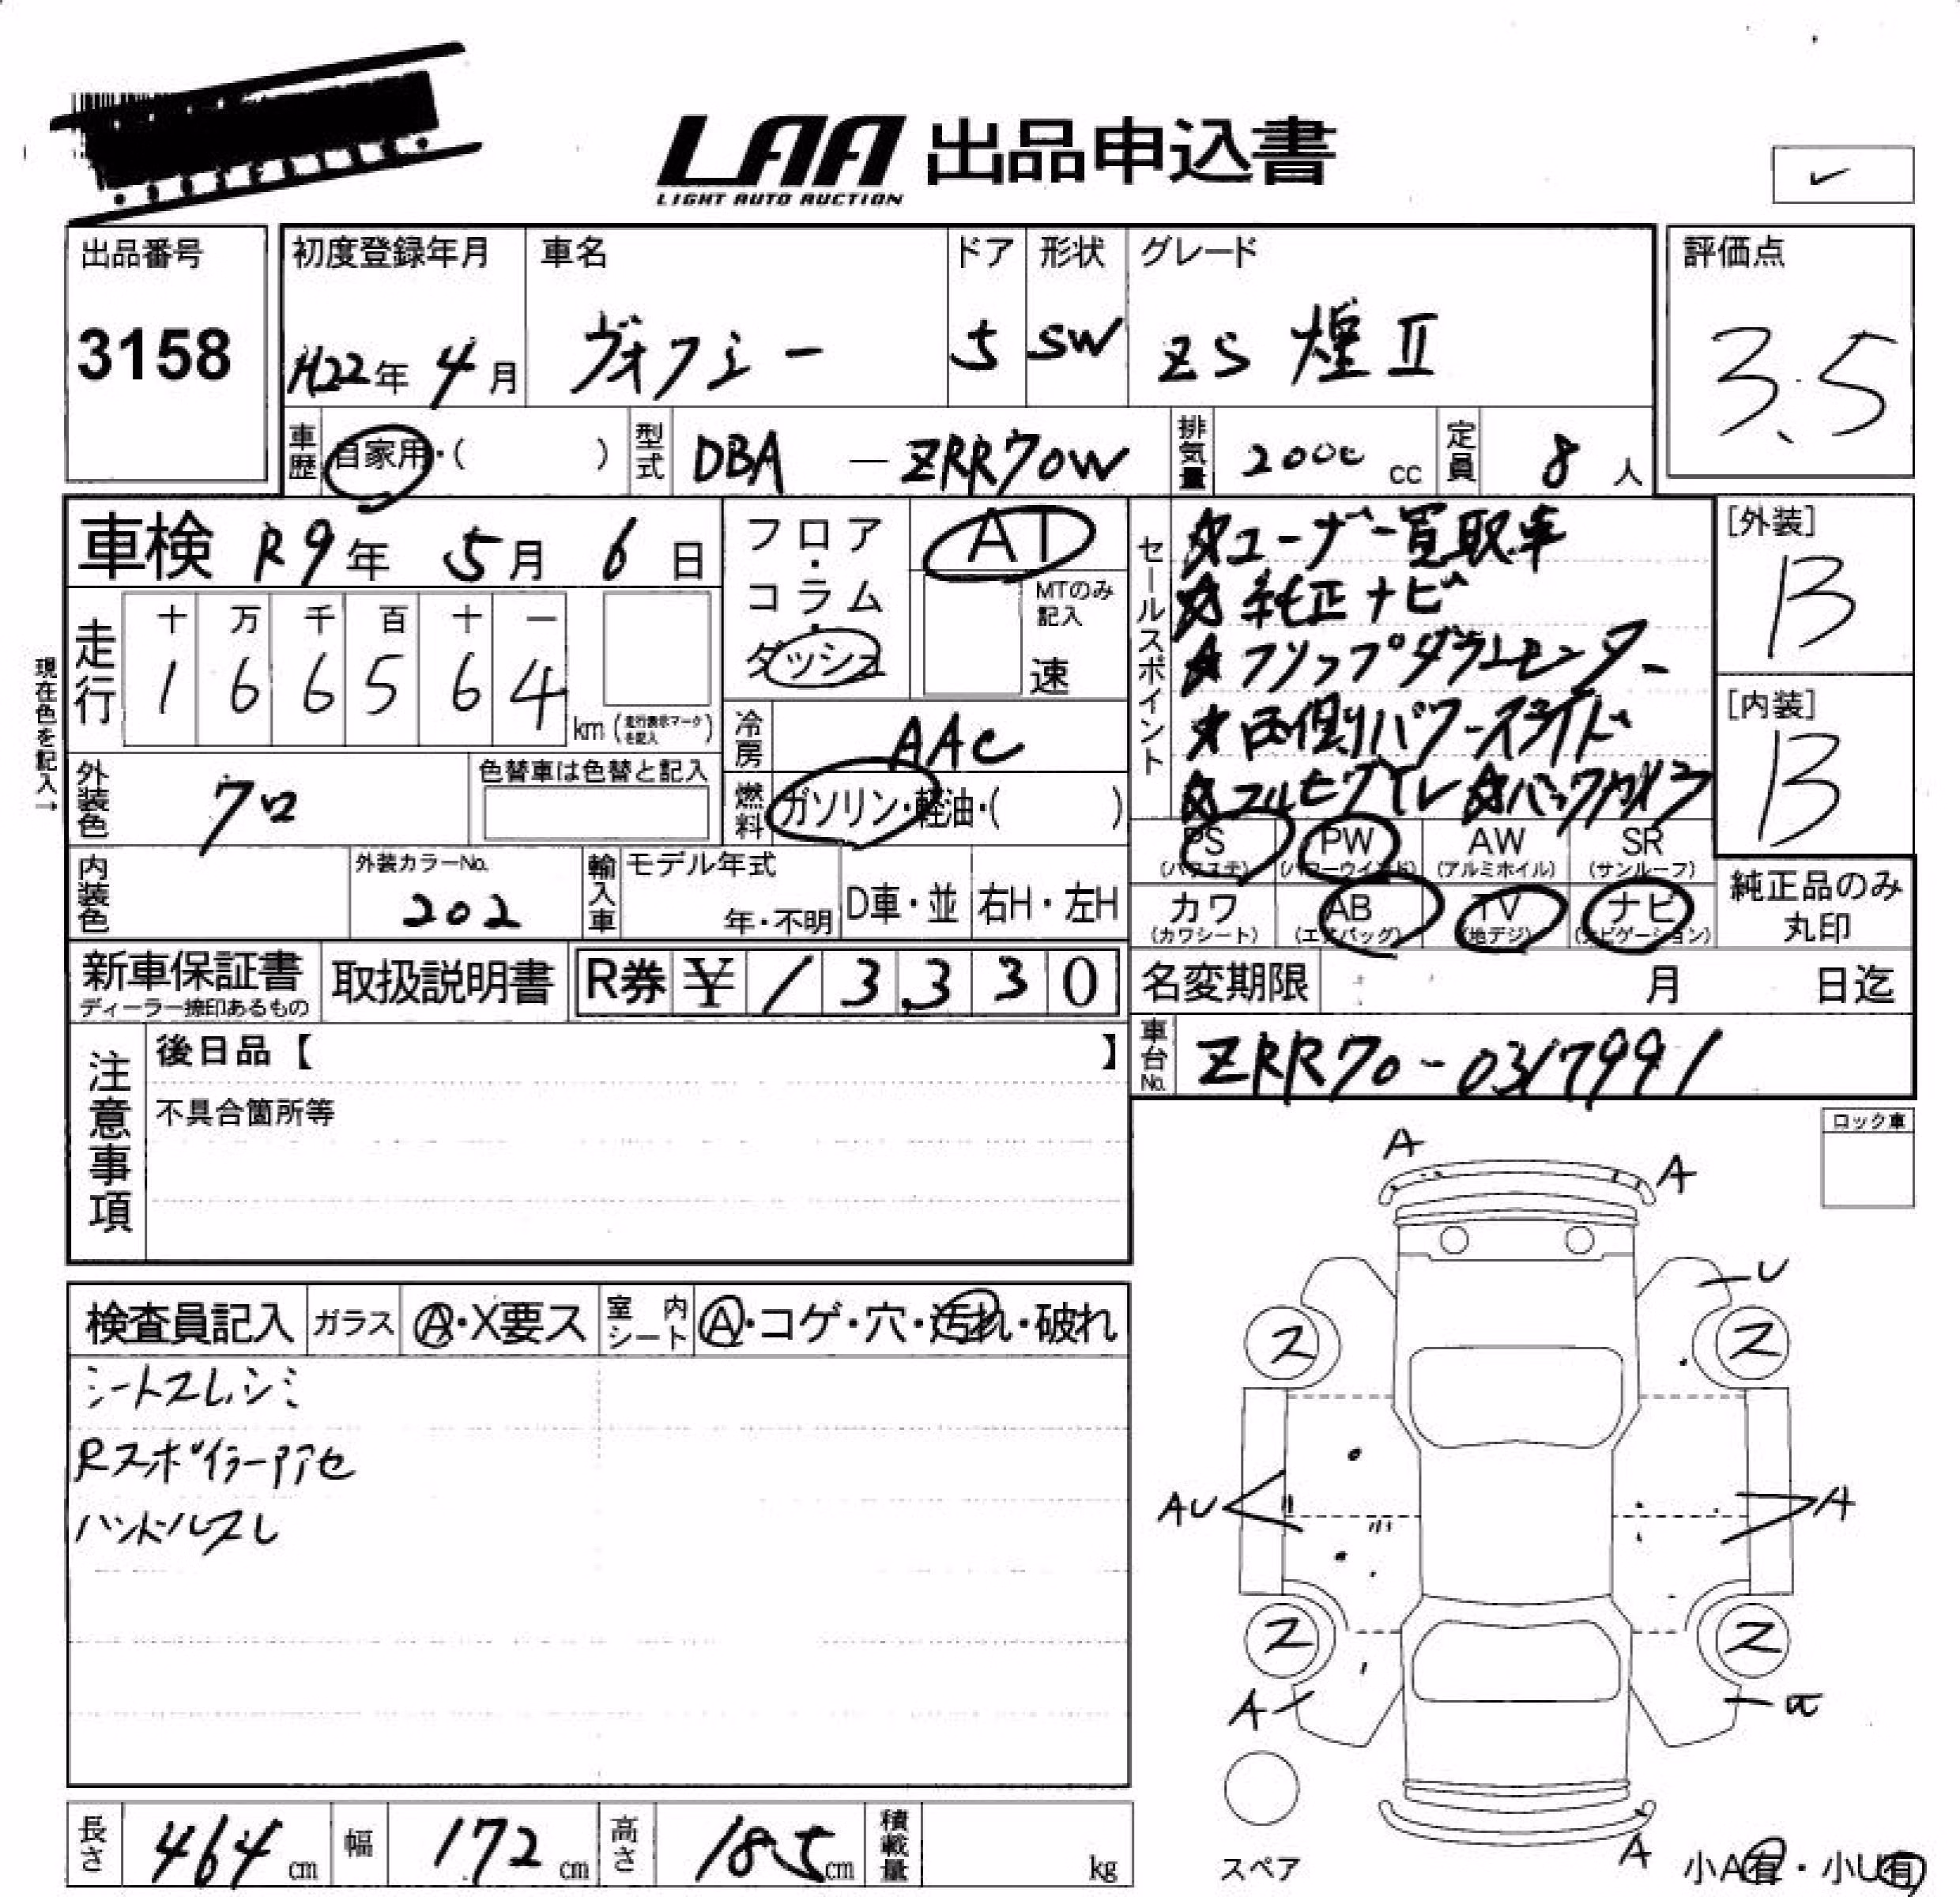 LAA 出品申込書
LIGHT AUTO AUCTION
✓
出品番号
3158
初度登録年月
H22年 4月
車名
ヴォクシー
ドア
5
形状
SW
グレード
ZS 煌 II
評価点
3.5
車歴 自家用・( )
型式 DBA - ZRR70W
排気量 2000 cc
定員 8 人
車検 R9年 5月 6日
フロア・コラム・ダッシュ
AT
MTのみ記入
速
セールスポイント
☆ユーザー買取車
☆純正ナビ
☆フリップダウンモニター
☆両側パワースライド
☆フルセグTV ☆バックカメラ
[外装]
B
[内装]
B
現在色を記入→
走行
十 万 千 百 十 一
1 6 6 5 6 4
km (走行表示マークを記入)
冷房 AAC
燃料 ガソリン・軽油・( )
外装色 クロ
色替車は色替と記入
内装色
外装カラーNo.
202
輸入車
モデル年式
年・不明
D車・並
右H・左H
PS (パワステ)
PW (パワーウインド)
AW (アルミホイル)
SR (サンルーフ)
カワ (カワシート)
AB (エアバッグ)
TV (地デジ)
ナビ (ナビゲーション)
純正品のみ丸印
新車保証書
ディーラー捺印あるもの
取扱説明書
R券 ¥ / 3 3 3 0
名変期限 月 日迄
車台No. ZRR70-0317991
注意事項
後日品【 】
不具合箇所等
ロック車
検査員記入
ガラス A・X要ス
室内シート A・コゲ・穴・汚れ・破れ
シートスレ、シミ
Rスポイラー色アセ
ハンドルスレ
A
A
U
ス
ス
AU
A
ス
ス
A
A
スペア
小A有・小U有
長さ 464 cm
幅 172 cm
高さ 185 cm
積載量 kg